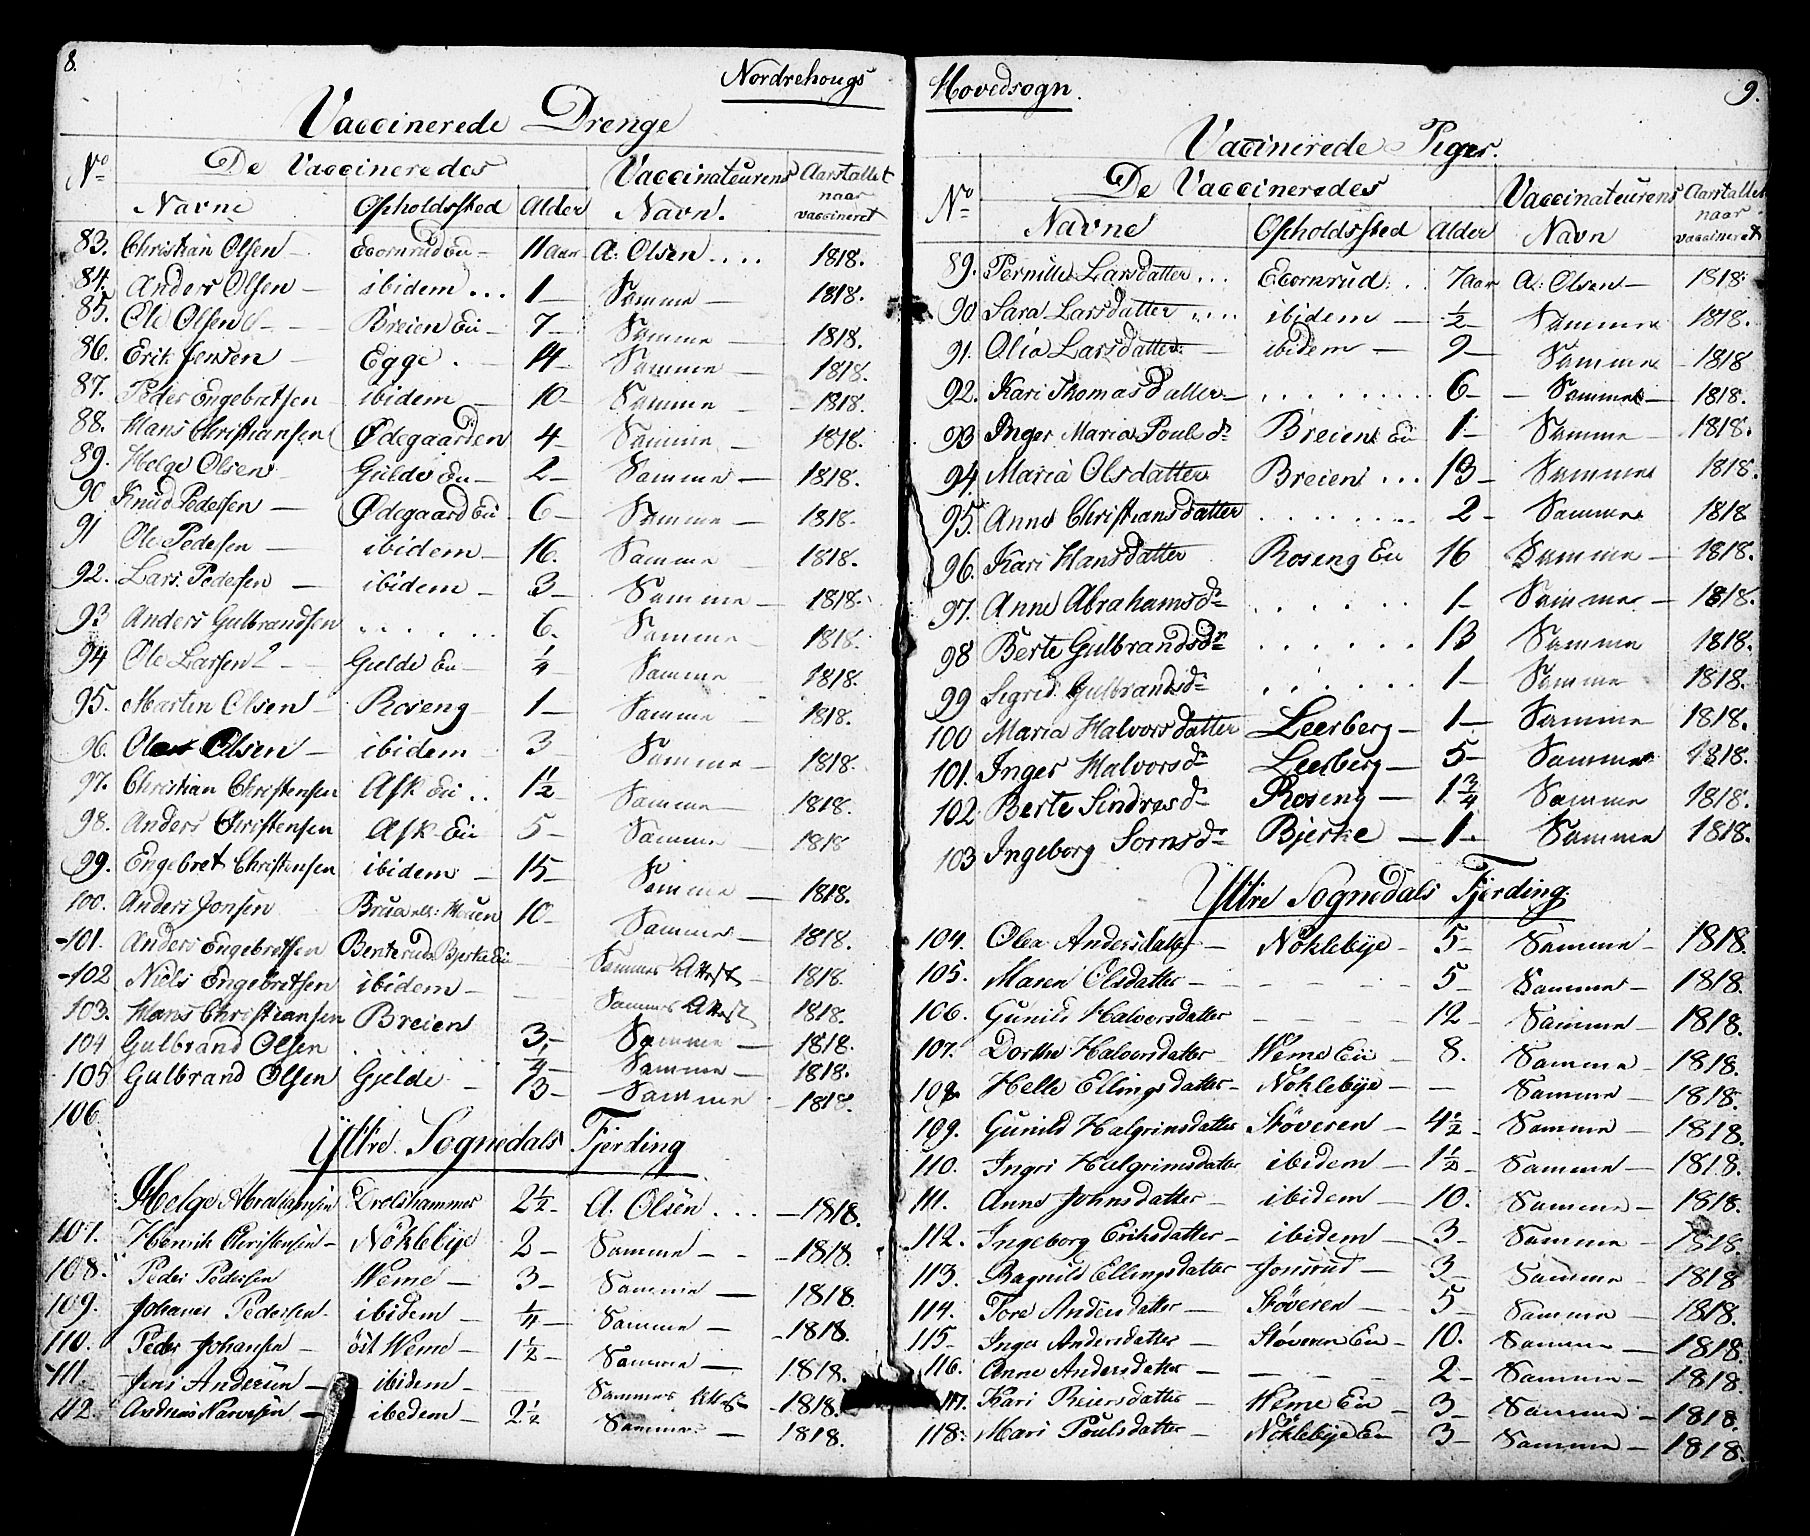 8.
Nordrehougs
Vaccinerede Drenge
No
De Vaccineredes
Vaccinateurens
Aarstallet
Navne Opholdssted Alder Navn. naar vaccineret
83. Christian Olsen Eeornrud Eii 11 aar A: Olsen .... 1818.
84. Anders Olsen ibidem ... 1 Samme 1818.
85. Ole Olsen Breien Eii 7 Samme 1818.
86. Erik Jensen Egge 14 Samme 1818.
87. Peder Engebretsen ibidem 10 Samme 1818.
88. Hans Christiansen Ødegaarden 4 Samme 1818.
89. Helge Olsen Gulde Eii 2 Samme 1818.
90 Knud Pedersen Ødegaard Eii 6 Samme 1818.
91 Ole Pedersen ibidem 16. Samme 1818.
92. Lars Pedersen ibidem 3 Samme 1818.
93 Anders Gulbrandsen ...... 6. Samme 1818.
94 Ole Larsen Gjelde Eii ¼ Samme 1818.
95. Martin Olsen Roseng 1 Samme 1818.
96. Olsen ibidem 3 Samme 1818.
97. Christian Christensen Ask Eii .. 1½ Samme 1818.
98. Anders Christensen Ask Eii 5 Samme 1818
99. Engebret Christensen ibidem 15 Samme 1818.
100. Anders Jonsen 10 Samme 1818.
101. Anders Engebretsen Benterud Bjerke Eii Sammes Attest 1818.
102 Niels Engebretsen ibidem Sammes Attest 1818.
103. Hans Christiansen Breien 3 Samme 1818.
104 Gulbrand Olsen ¼ Samme 1818.
105 Gulbrand Olsen Gjelde 13 Samme 1818.
106.
Yttre Sognedals Fjerding
Helge Abrahamsen Drolshammer 2½ A: Olsen ... 1818.
107. Henrik Christensen Nöklebye 2 Samme 1818.
108. Peder Pedersen Weme 3 Samme 1818.
109. Johanes Pedersen ibidem ¼ Samme 1818.
110. Peder Johansen öst Weme 1½ Samme 1818.
111. Jens Andersen ibidem Sammes Attest 1818.
42. Andreas ibedem 2½ Samme 1818.
Hovedsogn.
9.
Vaccinerede Piger.
No
De Vaccineredes
Vaccinateurens
Aarstallet
Navne Opholdssted Alder Navn naar vaccineret
89. Pernille Larsdatter ... Eeornrud . . 7 aar A: Olsen 1818.
90 Sara Larsdatter .... ibidem ½ Samme 1818.
91. Olia Larsdatter ibidem 9 Samme 1818
92. Kari Thomasdatter ........ 6 Samme 1818.
93 Inger Maria Pouls dr Breien Eii 1 Samme 1818.
94. Maria Olsdatter Breien ... 13 Samme 1818.
95. Anne Christiansdatter ....... 2 Samme 1818
96. Kari Hansdatter Roseng Eii 16 Samme 1818.
97. Anne Abrahamsdr ...... 1 Samme 1818.
98 Berte Gulbrandsdr ...... 13 Samme 1818.
99 Sigrid Gulbrandsdr ...... 1 Samme 1818.
100 Maria Halvorsdatter Leerberg 1 Samme 1818.
101. Inger Halvorsdr Leerberg 5 Samme 1818.
102. Berte Sindresdr Roseng 1¾ Samme 1818.
103 Ingeborg Sornsdr Bjerke 1. Samme 1818.
Yttre Sognedals Fjerding.
104. Olea Andersdatter Nöklebye 5 Samme 1818.
105. Maren Olsdatter 5 Samme 1818.
106. Gunild Halvorsdatter 12 Samme 1818.
107. Dorthe Halvorsdatter Weme Eii 8. Samme 1818.
108. Helle Ellingsdatter Nöklebye Samme 1818.
109. Gunild Halgrimsdatter Stöveren 4½ Samme 1818.
110. Ingri Halgrimsdatter ibidem 1½ Samme 1818.
111. Anne Johnsdatter ibidem 10. Samme 1818.
112. Ingeborg Eriksdatter ibidem 3 Samme 1818.
113. Ragnild Ellingsdatter Jonsrud 3 Samme 1818
114. Tore Andersdatter Stöveren 5 Samme 1818.
115 Inger Andersdatter Stöveren Eii 10. Samme 1818.
116. Anne Andersdatter 2 Samme 1818.
117. Kari Reiersdatter Weme Eii 3 Samme 1818.
118. Mari Poulsdatter Nöklebye Eii 3 Samme 1818.